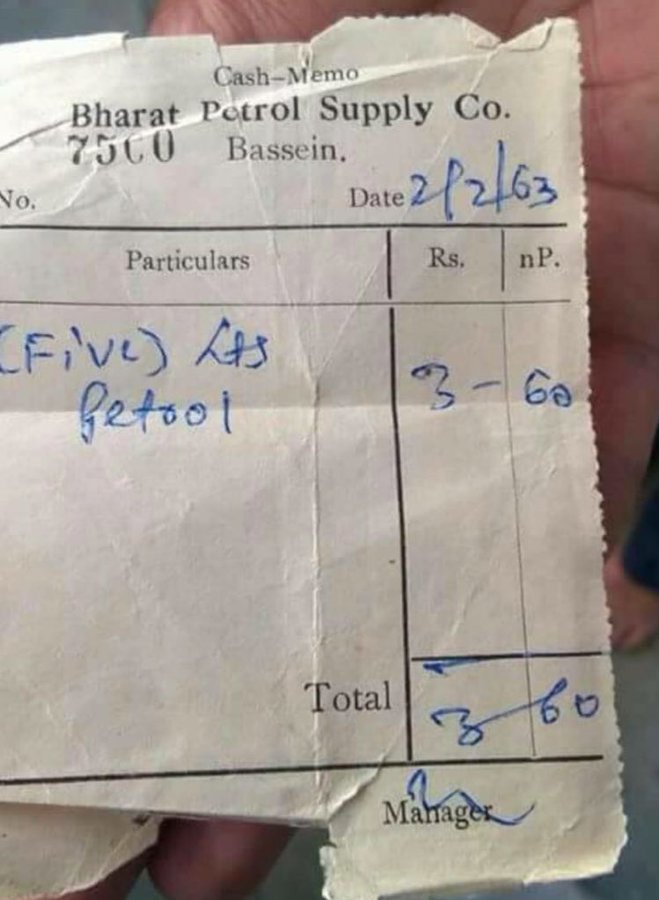 Cash-Memo
Bharat Petrol Supply Co.
7500 Bassein.
No. Date 2/2/63
Particulars Rs. nP.
(Five) Lts 3 - 60
Petrol
Total 3 - 60
Manager